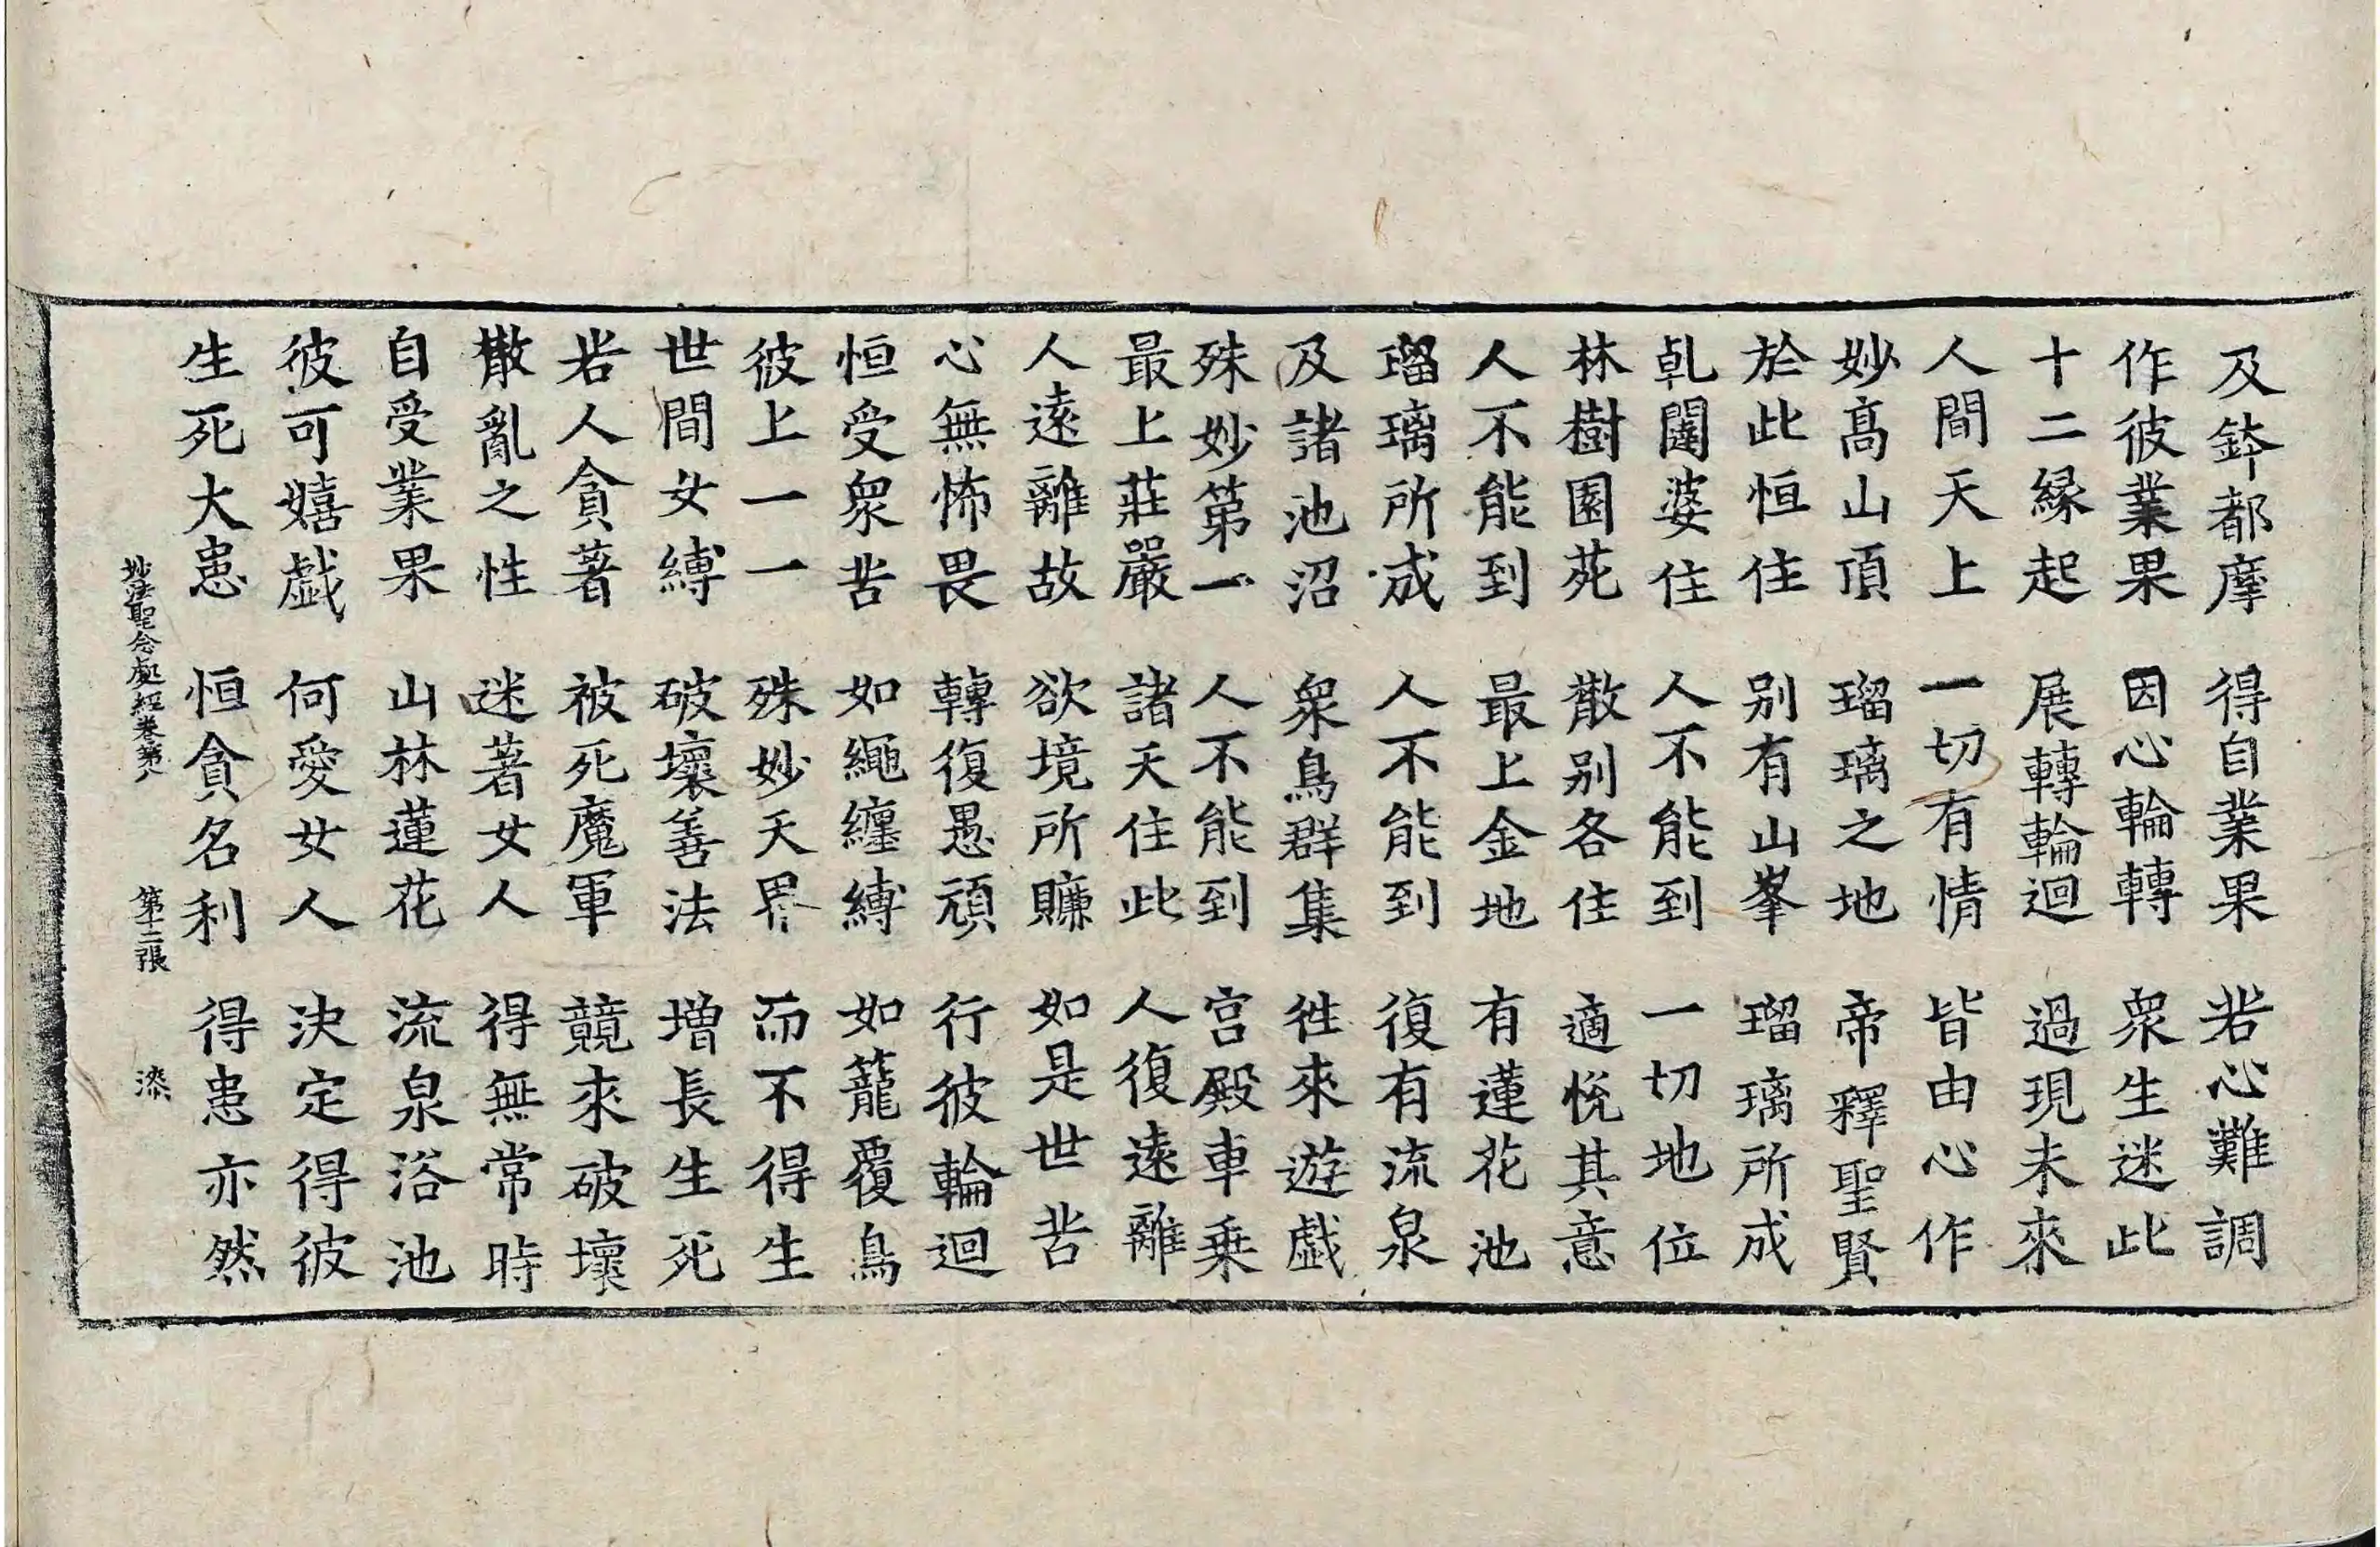 及鉢都摩 得自業果 若心難調
作彼業果 因心輪轉 衆生迷此
十二緣起 展轉輪迴 過現未來
人間天上 一切有情 皆由心作
妙高山頂 瑠璃之地 帝釋聖賢
於此恒住 别有山峯 瑠璃所成
乹闥婆住 人不能到 一切地位
林樹園苑 散别各住 適悅其意
人不能到 最上金地 有蓮花池
瑠璃所成 人不能到 復有流泉
及諸池沼 衆鳥群集 徃來遊戱
殊妙第一 人不能到 宫殿車乗
最上莊嚴 諸天住此 人復遠離
人遠離故 欲境所賺 如是世苦
心無怖畏 轉復愚頑 行彼輪迴
恒受衆苦 如繩纏縛 如籠覆鳥
彼上一一 殊妙天界 而不得生
世間女縛 破壞善法 增長生死
若人貪著 被死魔軍 競來破壞
散亂之性 迷著女人 得無常時
自受業果 山林蓮花 流泉浴池
彼可嬉戱 何愛女人 決定得彼
生死大患 恒貪名利 得患亦然
妙法聖念處經卷第八 第十二張 染